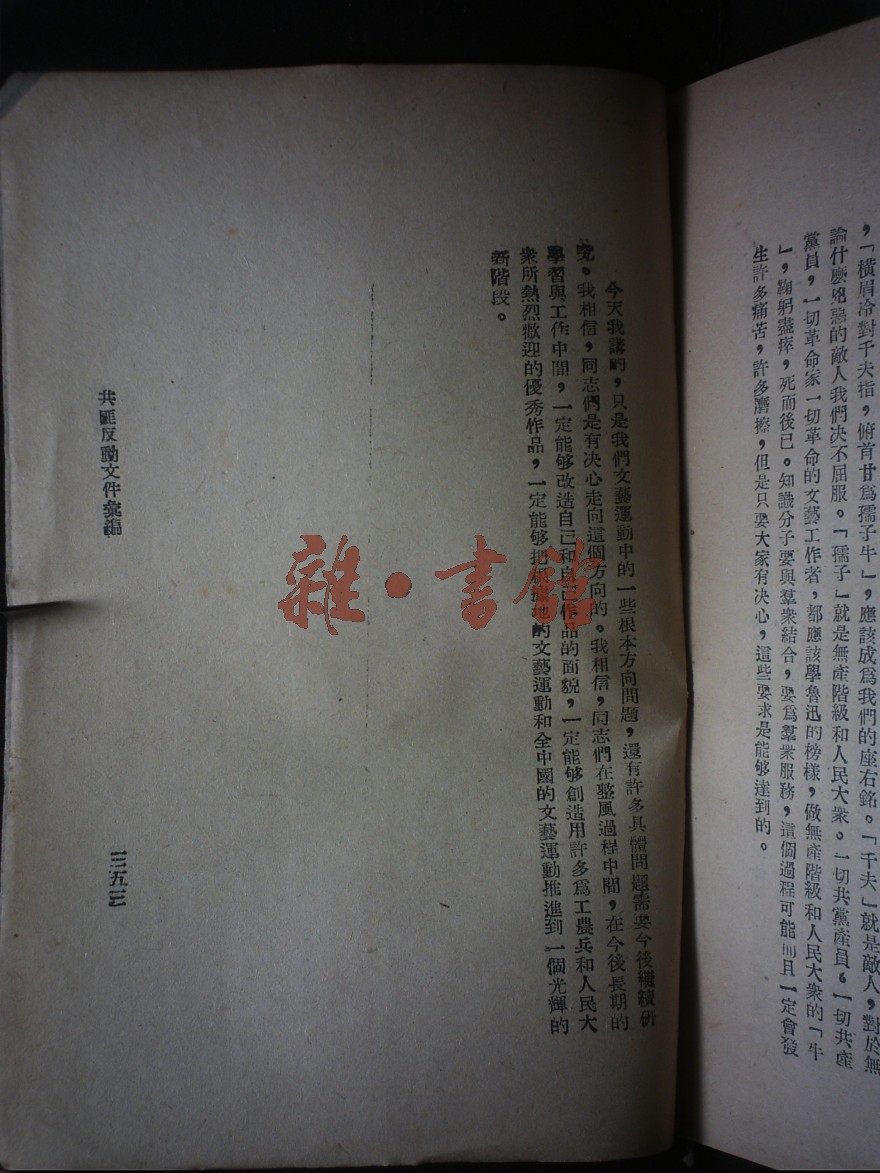 ，「橫眉冷對千夫指，俯首甘爲孺子牛」，應該成爲我們的座右銘。「千夫」就是敵人，對於無
論什麽兇惡的敵人我們决不屈服。「孺子」就是無產階級和人民大衆。一切共黨產員，一切共產
黨員，一切革命家一切革命的文藝工作者，都應該學魯迅的榜樣，做無產階級和人民大衆的「牛
」，鞠躬盡瘁，死而後已。知識分子要與羣衆結合，要爲羣衆服務，這個過程可能而且一定會發
生許多痛苦，許多磨擦，但是只要大家有决心，這些要求是能够達到的。
今天我講的，只是我們文藝運動中的一些根本方向問題，還有許多具體問題需要今後繼續研
究。我相信，同志們是有决心走向這個方向的。我相信，同志們在整風過程中間，在今後長期的
學習與工作中間，一定能够改造自己和自己作品的面貌，一定能够創造用許多爲工農兵和人民大
衆所熱烈歡迎的優秀作品，一定能够把根據地的文藝運動和全中國的文藝運動推進到一個光輝的
新階段。
共匪反動文件彙編
三五三
雜·書館